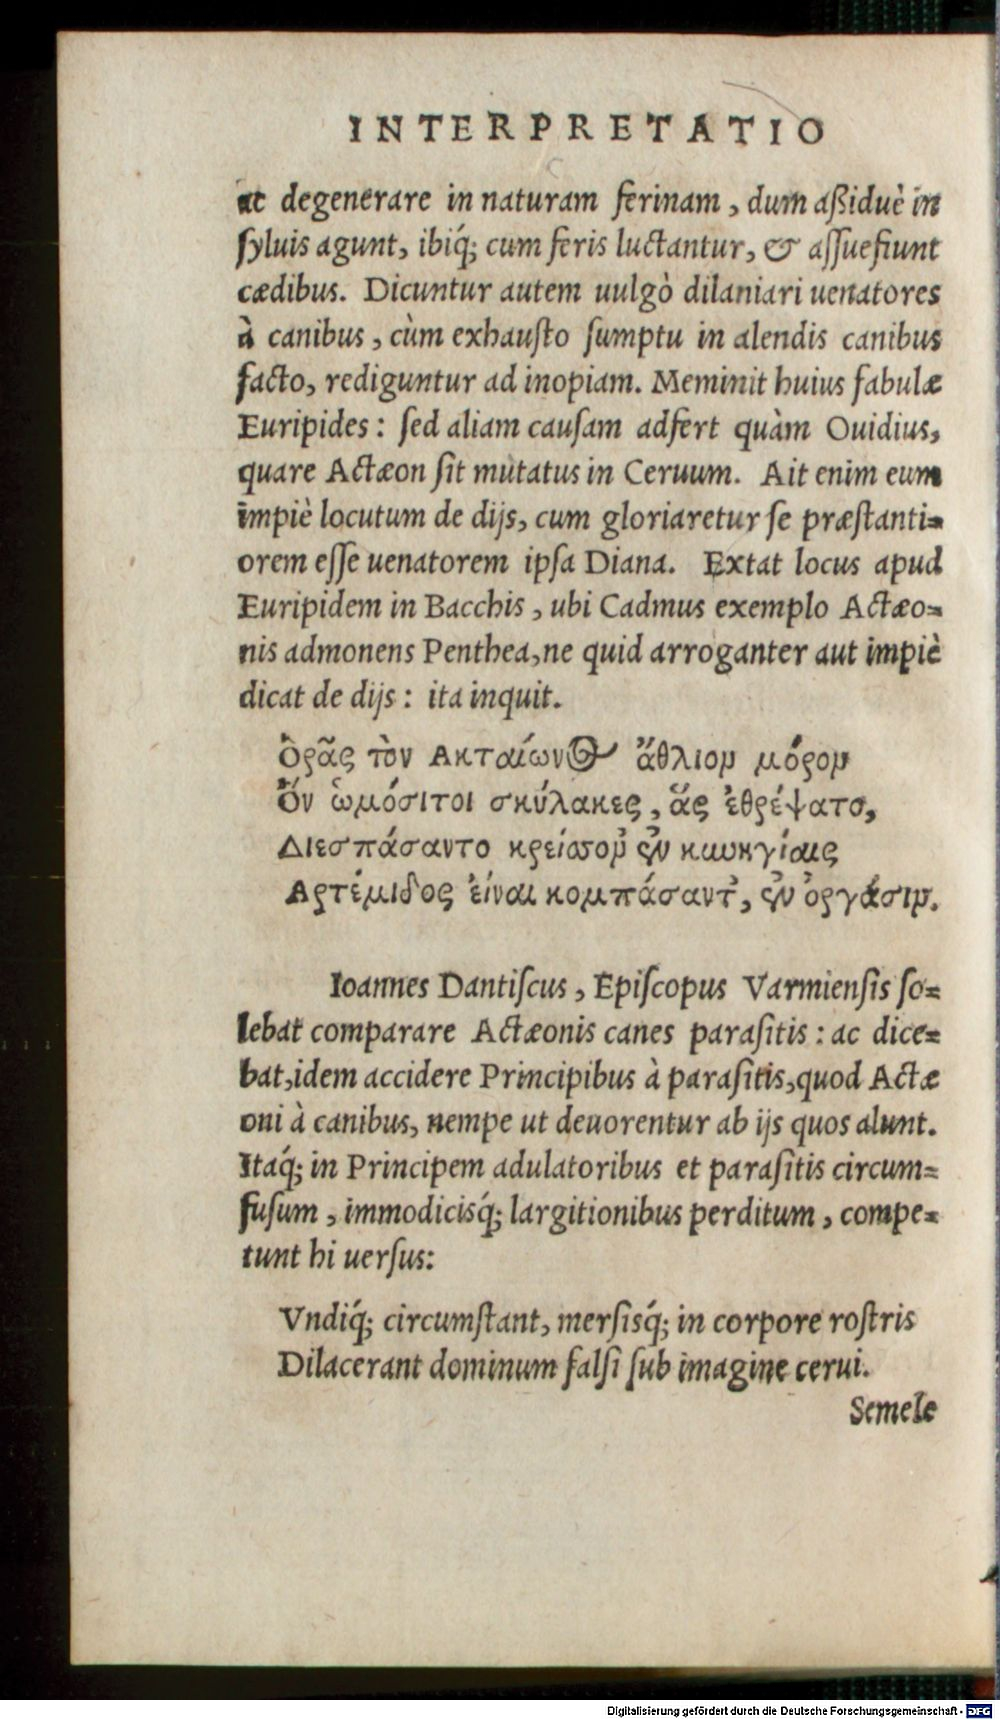 INTERPRETATIO
ac degenerare in naturam ferinam, dum aßiduè in
ſyluis agunt, ibiq́; cum feris luctantur, & aſſuefiunt
cædibus. Dicuntur autem uulgò dilaniari uenatores
à canibus, cùm exhauſto ſumptu in alendis canibus
facto, rediguntur ad inopiam. Meminit huius fabulæ
Euripides: ſed aliam cauſam adfert quàm Ouidius,
quare Actæon ſit mutatus in Ceruum. Ait enim eum
impiè locutum de dijs, cum gloriaretur ſe præſtanti=
orem eſſe uenatorem ipſa Diana. Extat locus apud
Euripidem in Bacchis, ubi Cadmus exemplo Actæo=
nis admonens Penthea, ne quid arroganter aut impiè
dicat de dijs: ita inquit.
Ὁρᾷς τὸν Ακταίωνος ἄθλιον μόρον
Ὃν ὠμόσιτοι σκύλακες, ἃς ἐθρέψατο,
Διεσπάσαντο κρείσσον' ἐν κυνηγίαις
Αρτέμιδος εἶναι κομπάσαντ', ἐν ὀργάσιν.
Ioannes Dantiſcus, Epiſcopus Varmienſis ſo=
lebat comparare Actæonis canes paraſitis: ac dice=
bat, idem accidere Principibus à paraſitis, quod Actæ
oni à canibus, nempe ut deuorentur ab ijs quos alunt.
Itaq́; in Principem adulatoribus et paraſitis circum=
fuſum, immodicisq́; largitionibus perditum, compe=
tunt hi uerſus:
Vndiq́; circumſtant, merſisq́; in corpore roſtris
Dilacerant dominum falſi ſub imagine cerui.
Semele
Digitalisierung gefördert durch die Deutsche Forschungsgemeinschaft - DFG